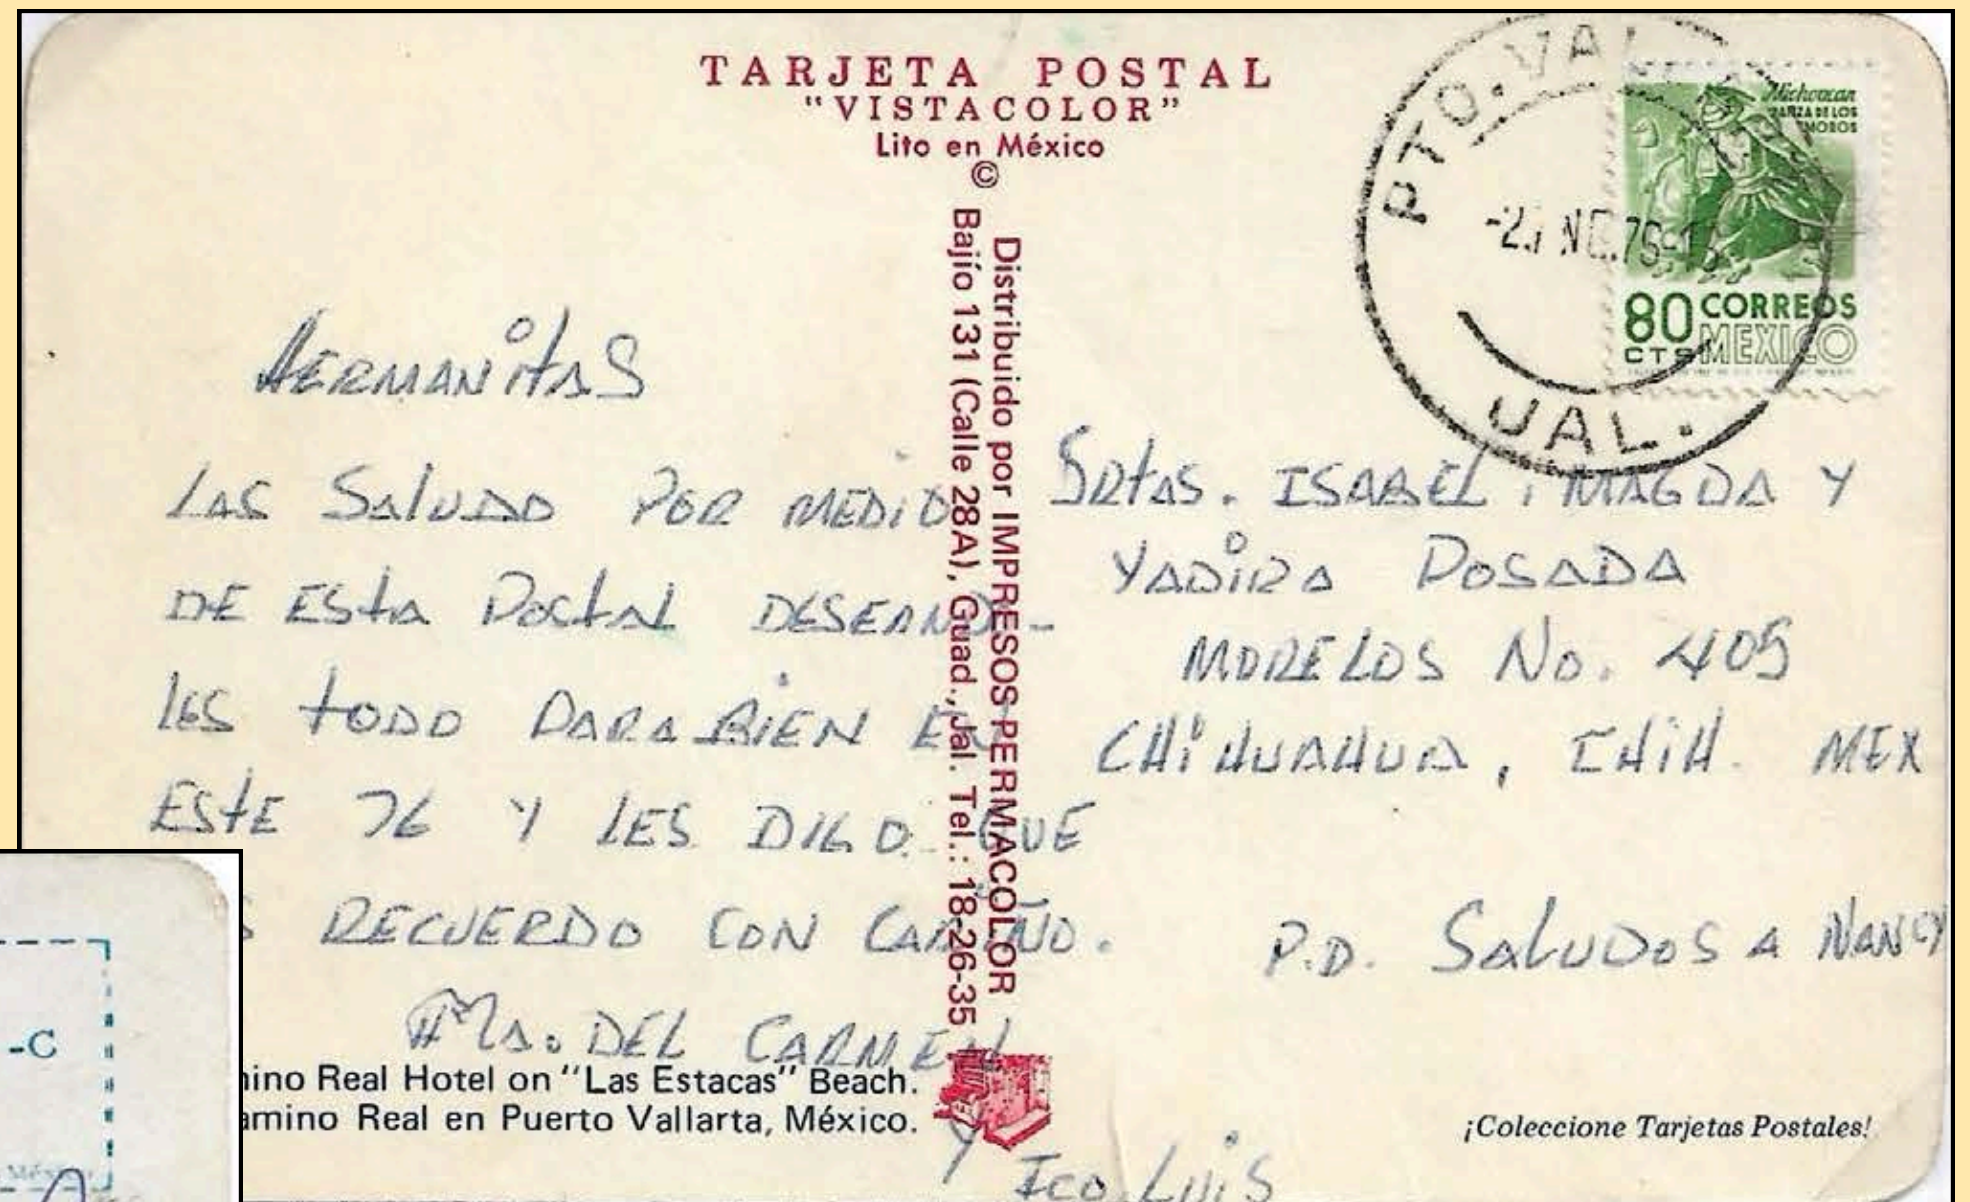 TARJETA POSTAL
"VISTACOLOR"
Lito en México
©
Distribuido por IMPRESOS PERMACOLOR
Bajío 131 (Calle 28A), Guad., Jal. Tel.: 18-26-35
PTO. VAL
JAL.
Michoacan
DANZA DE LOS
MOROS
80 CORREOS
CTS MEXICO
HERMANITAS
LAS SALUDO POR MEDIO
DE ESTA POSTAL DESEANDO-
LES TODO PARA BIEN EN
ESTE 76 Y LES DIGO QUE
RECUERDO CON CARIÑO.
Ma. DEL CARMEN
Y
Fco. LUIS
SRTAS. ISABEL, MAGDA Y
YADIRA POSADA
MORELOS No. 405
CHIHUAHUA, CHIH. MEX
P.D. SALUDOS A NANCY
ino Real Hotel on "Las Estacas" Beach.
amino Real en Puerto Vallarta, México.
¡Coleccione Tarjetas Postales!
-C